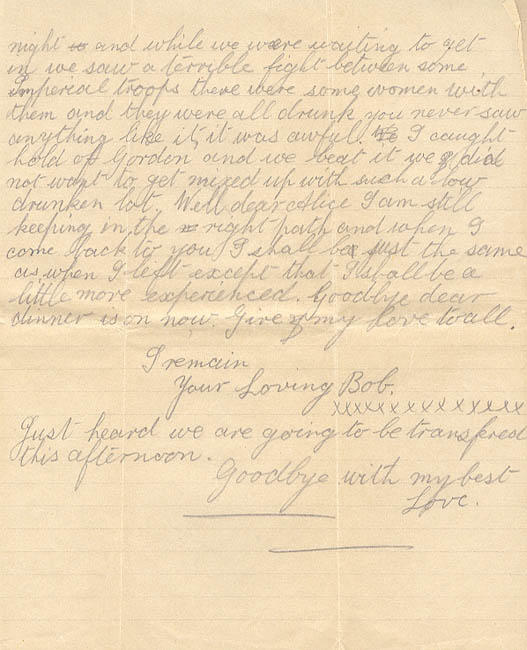 night and while we were waiting to get
in we saw a terrible fight between some
imperial troops there were some women with
them and they were all drunk you never saw
anything like it, it was awful. We I caught
hold of Gordon and we beat it we did
not want to get mixed up with such a low
drunken lot. Well dear Alice I am still
keeping in the right path and when I
come back to you I shall be just the same
as when I left except that I shall be a
little more experienced. Goodbye dear
dinner is on now. Give my love to all.
I remain
Your Loving Bob.
xxxxxxxxxxxxxx
Just heard we are going to be transfred
this afternoon.
Goodbye with my best
Love.